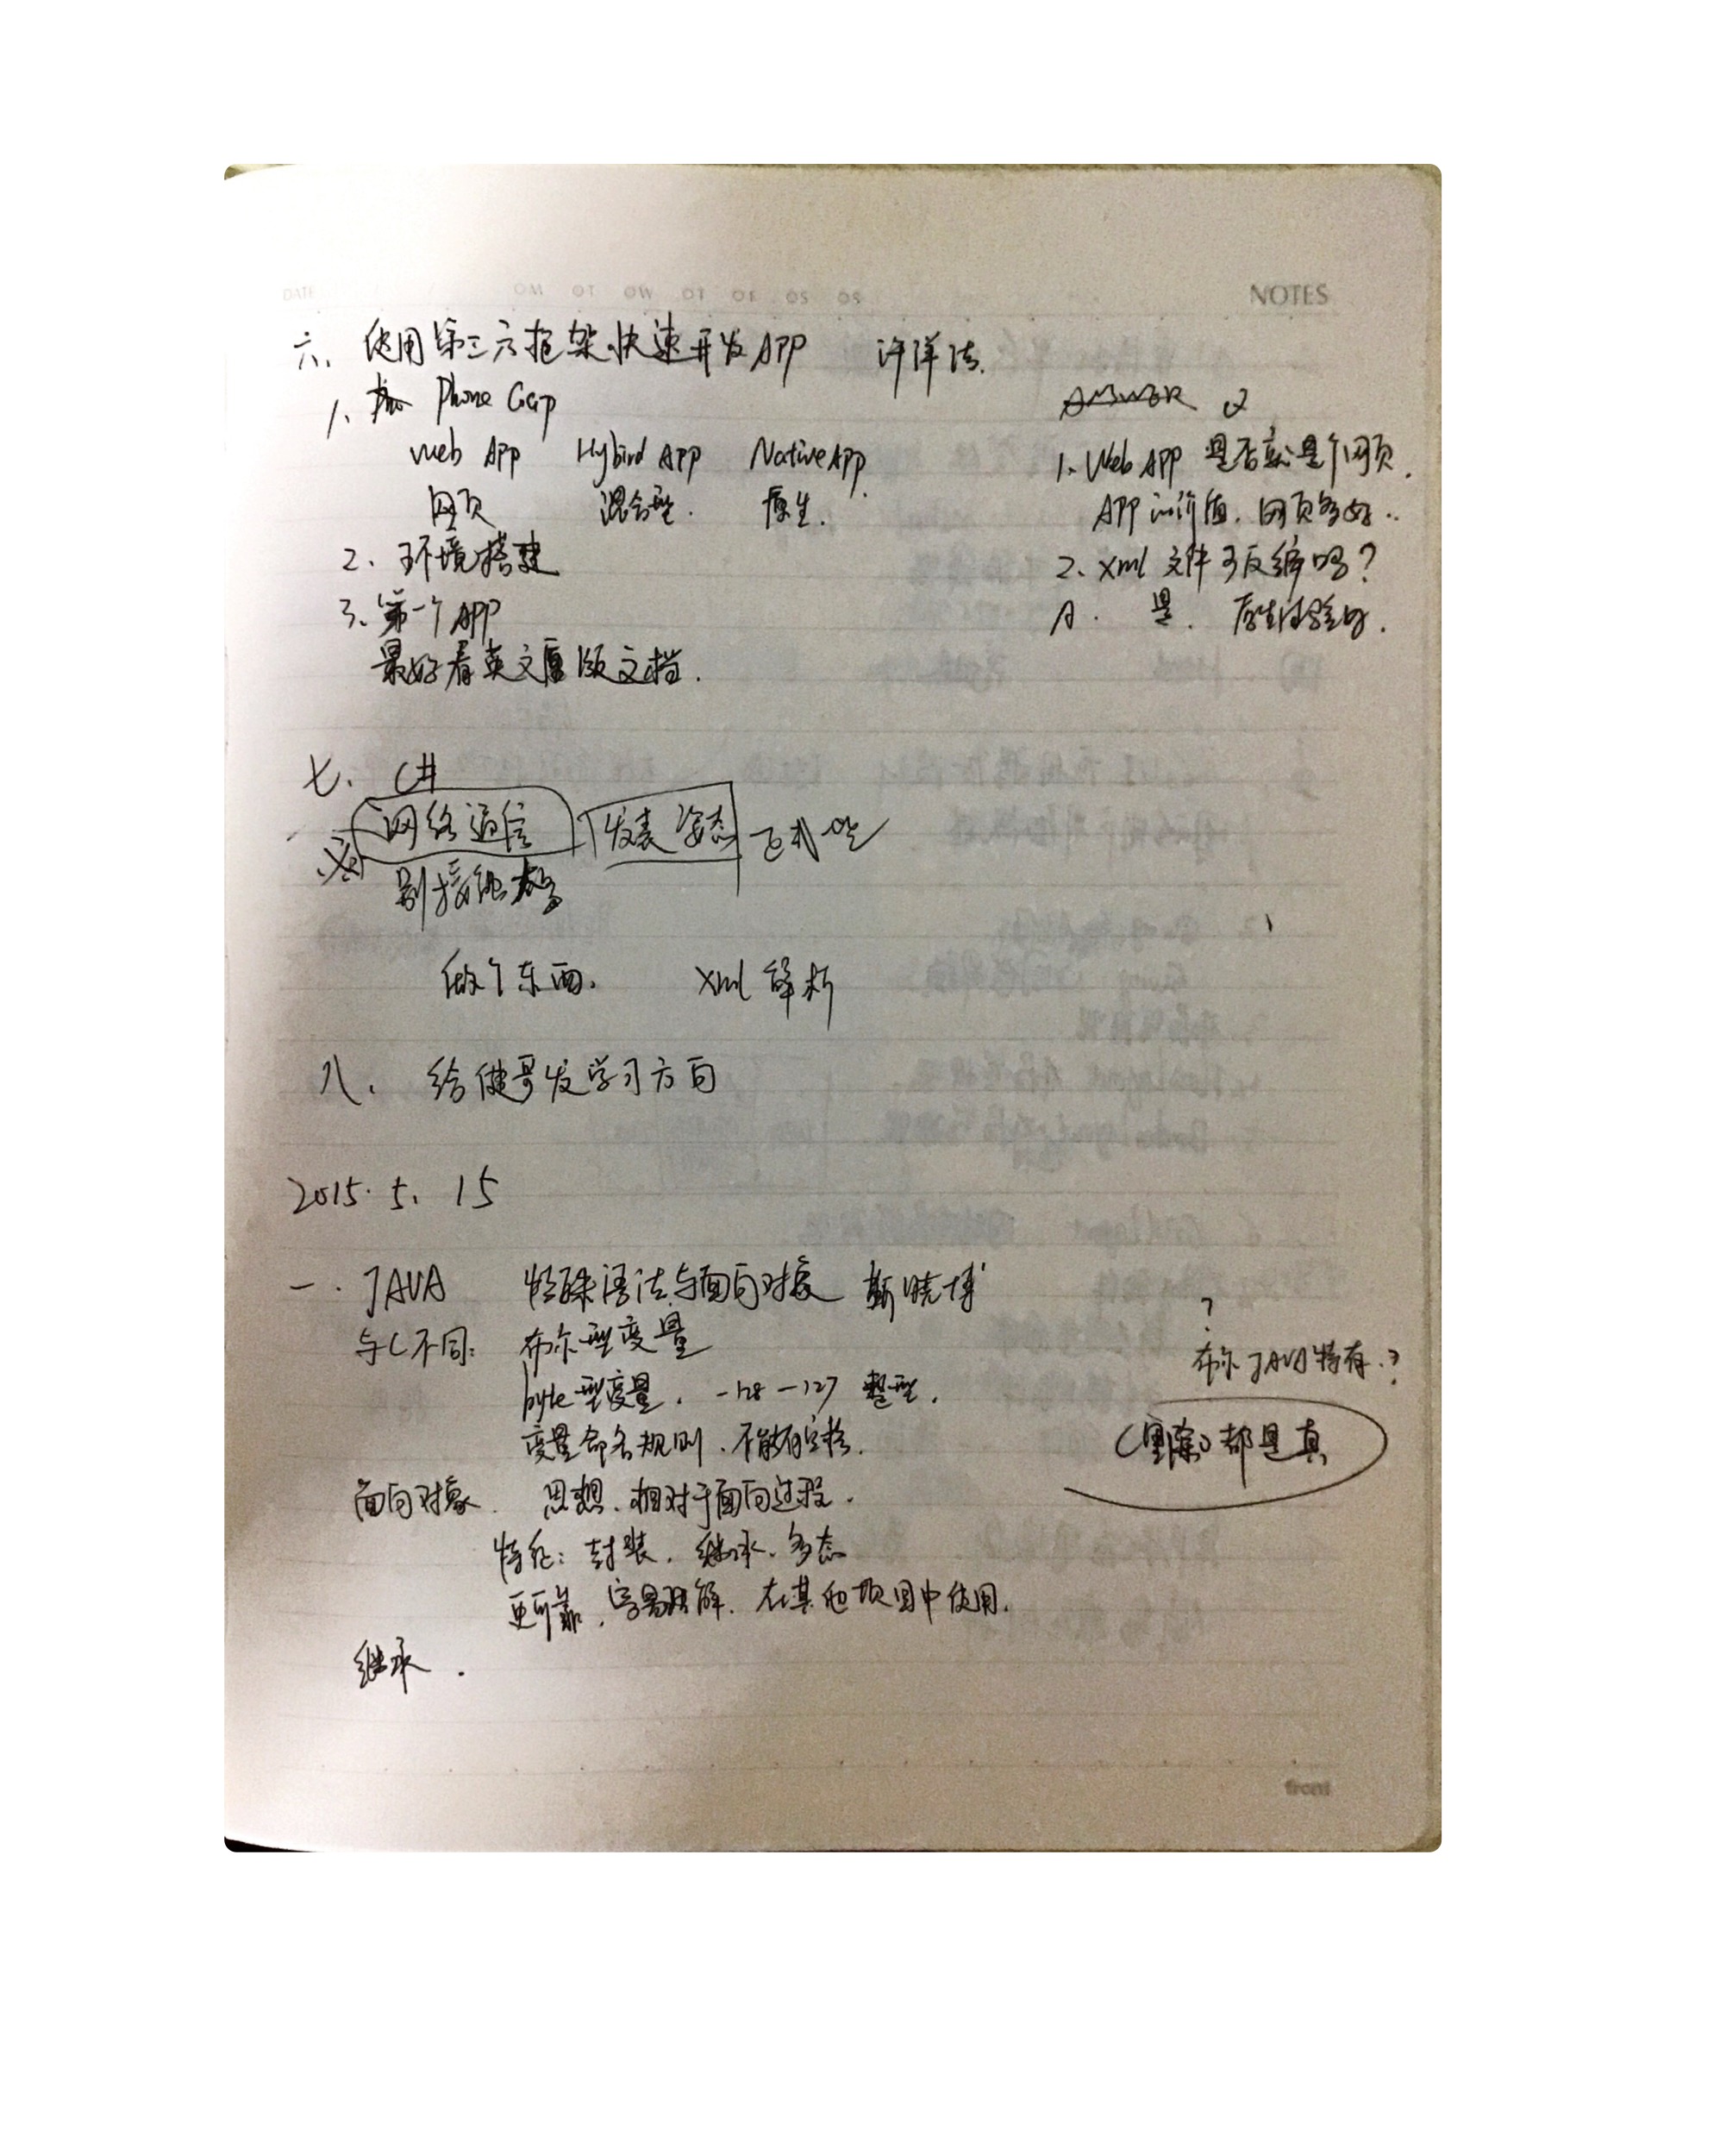 DATE
NOTES
六、使用第三方框架快速开发APP 许洋法.
1、Phone Gap
Web APP Hybird APP Native APP.
网页 混合型. 原生.
2、环境搭建
3、第一个APP
最好看英文原版文档.
ANSWER Q
1. Web APP 是否就是个网页.
APP的价值. 网页多好..
2. xml 文件可反编吗?
A. 是. 原生体验好.
七、C#
网络通信 发表姿态 正式一些
别接
做个东西. Xml 解析
八、给健哥发学习方向
2015. 5. 15
一. JAVA 特殊语法与面向对象 靳晓博
与C不同: 布尔型变量
byte型变量. -128 — 127 整型.
变量命名规则. 不能有空格.
?
布尔JAVA特有.?
都是真
面向对象. 思想. 相对于面向过程.
特征: 封装. 继承. 多态
更可靠. 容易理解. 在其他项目中使用.
继承.
front